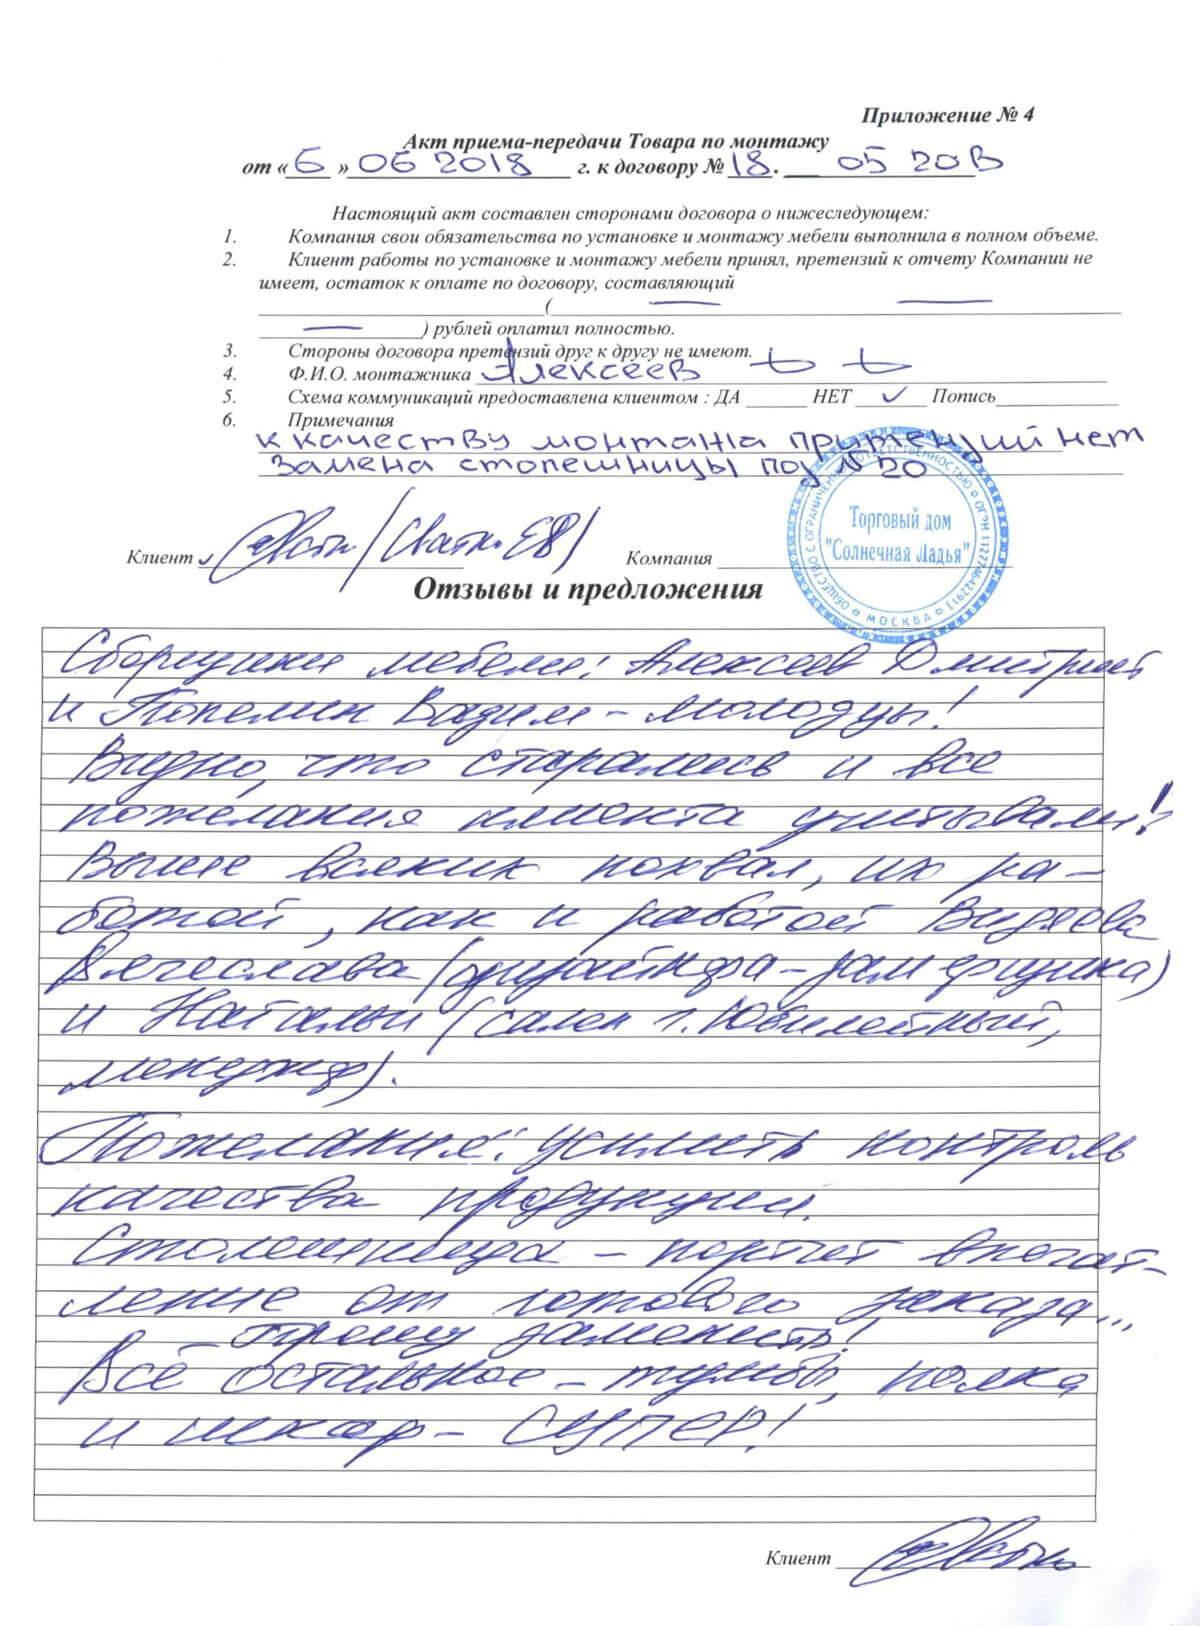 Приложение № 4
Акт приема-передачи Товара по монтажу
от « 6 » 06 2018 г. к договору № 18. 05 20 В
Настоящий акт составлен сторонами договора о нижеследующем:
1. Компания свои обязательства по установке и монтажу мебели выполнила в полном объеме.
2. Клиент работы по установке и монтажу мебели принял, претензий к отчету Компании не
имеет, остаток к оплате по договору, составляющий
( —  —
— ) рублей оплатил полностью.
3. Стороны договора претензий друг к другу не имеют.
4. Ф.И.О. монтажника Алексеев
5. Схема коммуникаций предоставлена клиентом : ДА ______ НЕТ ✓ Попись
6. Примечания
к качеству монтажа притензий нет
Замена столешницы поз №20
Клиент
Компания
Торговый дом
"Солнечная Ладья"
ОБЩЕСТВО С ОГРАНИЧЕННОЙ ОТВЕТСТВЕННОСТЬЮ ОГРН 1127746422913
МОСКВА
Отзывы и предложения
Сборщики мебели: Алексеев Дмитрий
и Попелин Вадим – молодцы!
Видно, что старались и все
пожелания клиента учитывали!
Выше всяких похвал, их ра-
ботой, как и работой Видяева
Вячеслава (дизайнера-замерщика)
и Натальи (салон г. Юбилейный,
менеджер).
Пожелания: усилить контроль
качества продукции.
Столешница – портит впечат-
ление от готового заказа...
– прошу заменить!
Всё остальное – тумбы, полка
и шкаф – СУПЕР!
Клиент